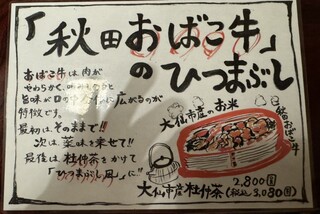 「秋田おばこ牛」
のひつまぶし
おばこ牛は肉が
やわらかく、
旨味が口の 広がるのが
特徴です。
最初は、そのままで!!
次は薬味を乗せて!!
最後は杜仲茶をかけて
「ひつまぶし風」に!!
大仙市産のお米
秋田おばこ牛
大仙市産杜仲茶
2,800円
(税込)3,080円